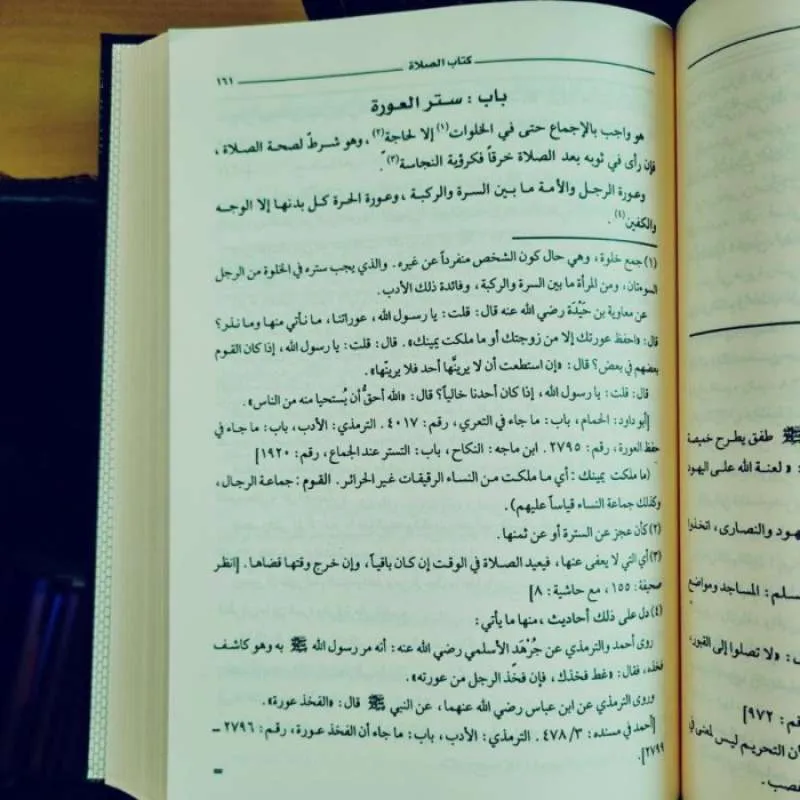 كتاب الصلاة ١٦١
باب : ستر العورة
هو واجب بالإجماع حتى في الخلوات(١) إلا لحاجة(٢) ، وهو شرطٌ لصحة الصلاة ،
فإن رأى في ثوبه بعد الصلاة خرقاً فكرؤية النجاسة(٣) .
وعورة الرجل والأمة ما بين السرة والركبة ، وعورة الحرة كل بدنها إلا الوجه
والكفين(٤) .
(١) جمع خلوة ، وهي حال كون الشخص منفرداً عن غيره . والذي يجب ستره في الخلوة من الرجل
السوءتان ، ومن المرأة ما بين السرة والركبة ، وفائدة ذلك الأدب .
عن معاوية بن حَيْدَة رضي الله عنه قال : قلت : يا رسول الله ، عوراتنا ، ما نأتي منها وما نذر؟
قال : «احفظ عورتك إلا من زوجتك أو ما ملكت يمينك» . قال : قلت : يا رسول الله ، إذا كان القوم
بعضهم في بعض؟ قال : «إن استطعت أن لا يرينَّها أحد فلا يرينّها» .
قال : قلت : يا رسول الله ، إذا كان أحدنا خالياً؟ قال : «الله أحقُّ أن يُستحيا منه من الناس» .
[أبو داود : الحمام ، باب : ما جاء في التعري ، رقم : ٤٠١٧ . الترمذي : الأدب ، باب : ما جاء في
حفظ العورة ، رقم : ٢٧٩٥ . ابن ماجه : النكاح ، باب : التستر عند الجماع ، رقم : ١٩٢٠]
(ما ملكت يمينك : أي ما ملكت من النساء الرقيقات غير الحرائر . القوم : جماعة الرجال ،
وكذلك جماعة النساء قياساً عليهم) .
(٢) كأن عجز عن السترة أو عن ثمنها .
(٣) أي التي لا يعفى عنها ، فيعيد الصلاة في الوقت إن كان باقياً ، وإن خرج وقتها قضاها . [انظر
صحيفة : ١٥٥ ، مع حاشية : ٨]
(٤) دل على ذلك أحاديث ، منها ما يأتي :
روى أحمد والترمذي عن جَرْهَد الأسلمي رضي الله عنه : أنه مر رسول الله ﷺ به وهو كاشف
فخذه ، فقال : «غط فخذك ، فإن فخذ الرجل من عورته» .
وروى الترمذي عن ابن عباس رضي الله عنهما ، عن النبي ﷺ قال : «الفخذ عورة» .
[أحمد في مسنده : ٤٧٨/٣ . الترمذي : الأدب ، باب : ما جاء أن الفخذ عورة ، رقم : ٢٧٩٦ -
٢٧٩٩] .
ﷺ طفق يطرح خميصة
: « لعنة الله على اليهود
هود والنصارى ، اتخذوا
سلم : المساجد ومواضع
: «لا تصلوا إلى القبور،
قم : ٩٧٢]
ن التحريم ليس لمعنى في
غصب .